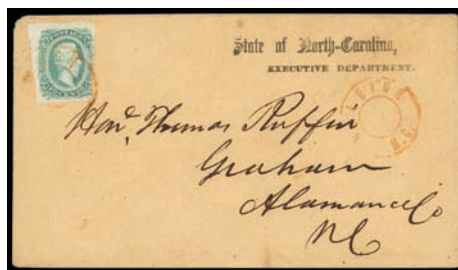 State of North-Carolina,
EXECUTIVE DEPARTMENT.
N.C.
Hon. Thomas Ruffin
Graham
Alamance Co
NC